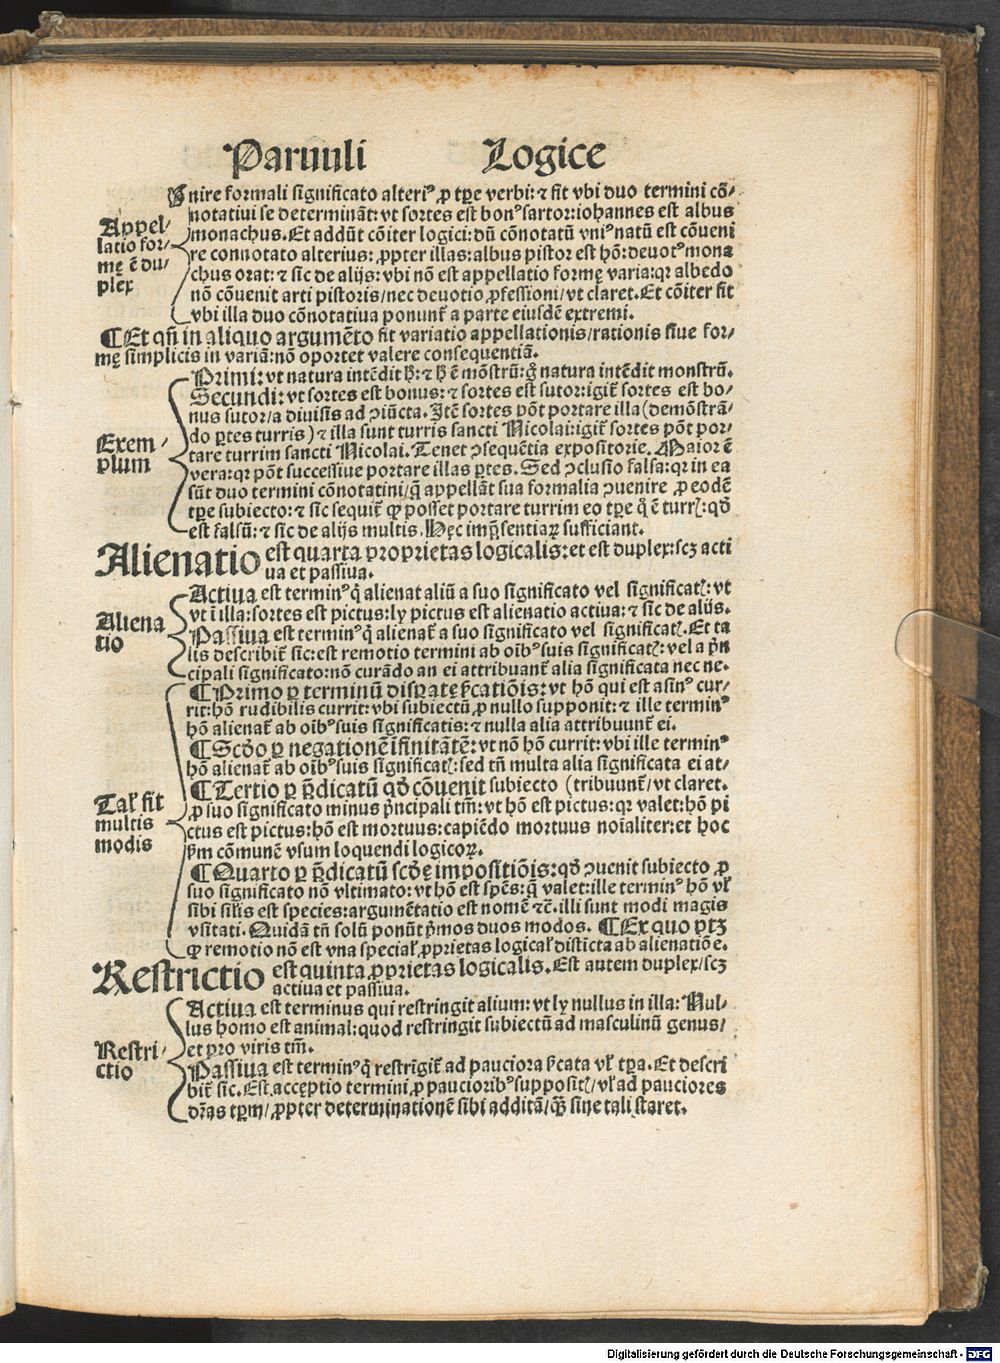 Paruuli Logice
Vnire formali significato alteriꝰ ꝓ tꝑe verbi: ⁊ fit vbi duo termini cō/
notatiui se determinãt: vt sortes est bonꝰ sartor: iohannes est albus
monachus. Et addūt cōiter logici: dū cōnotatū vniꝰ natū est cōueni
re connotato alterius: ꝓpter illas: albus pistor est hō: deuotꝰ mona
chus orat: ⁊ sic de alijs: vbi nō est appellatio formę varia: qꝛ albedo
nō cōuenit arti pistoris/ nec deuotio ꝓfessioni/ vt claret. Et cōiter fit
vbi illa duo cōnotatiua ponunt᷑ a parte eiusdē extremi.
Appel/
latio for/
mę ē du/
plex
¶ Et qñ in aliquo argumēto fit variatio appellationis/ rationis siue for/
mę simplicis in variã: nō oportet valere consequentiã.
Primi: vt natura intēdit hꝰ: ⁊ hꝰ ē mōstrū: gͦ natura intēdit monstrū.
Secundi: vt sortes est bonus: ⁊ sortes est sutor: igit᷑ sortes est bo/
nus sutor/ a diuisis ad ↄiūcta. Itē sortes pōt portare illa (demōstrã/
do ꝑtes turris) ⁊ illa sunt turris sancti Nicolai: igit᷑ sortes pōt por/
tare turrim sancti Nicolai. Tenet ↄsequētia expositorie. Maior ē
vera: qꝛ pōt successiue portare illas ꝑtes. Sed ↄclusio falsa: qꝛ in ea
sūt duo termini cōnotatiui/ q̄ appellãt sua formalia ↄuenire ꝓ eodē
tꝑe subiecto: ⁊ sic sequit᷑ ꝙ posset portare turrim eo tꝑe q̊ ē turrꝭ: qđ
est falsū: ⁊ sic de alijs multis. Hęc imp̄sentiaꝝ sufficiant.
Exem/
plum
Alienatio est quarta proprietas logicalis: et est duplex: scꝫ acti
ua et passiua.
Actiua est terminꝰ q̇ alienat aliū a suo significato vel significatꝭ: vt
vt ī illa: sortes est pictus: ly pictus est alienatio actiua: ⁊ sic de alijs.
Passiua est terminꝰ q̇ alienat᷑ a suo significato vel significatꝭ. Et ta
lis describit᷑ sic: est remotio termini ab oībꝰ suis significatꝭ: vel a p̄n
cipali significato: nō curãdo an ei attribuant᷑ alia significata nec ne.
Aliena
tio
¶ Primo ꝑ terminū disꝑate ſ̄catiōis: vt hō qui est asinꝰ cur/
rit: hō rudibilis currit: vbi subiectū ꝓ nullo supponit: ⁊ ille terminꝰ
hō alienat᷑ ab oībꝰ suis significatis: ⁊ nulla alia attribuunt᷑ ei.
¶ Scđo ꝑ negationē īfinitãtē: vt nō hō currit: vbi ille terminꝰ
hō alienat᷑ ab oībꝰ suis significatꝭ: sed tñ multa alia significata ei at/
¶ Tertio ꝑ p̄dicatū qđ cōuenit subiecto (tribuunt᷑/ vt claret.
ꝓ suo significato minus p̄ncipali tm̄: vt hō est pictus: qꝛ valet: hō pi
ctus est pictus: hō est mortuus: capiēdo mortuus noīaliter: et hoc
ſm cōmunē vsum loquendi logicoꝝ.
¶ Quarto ꝑ p̄dicatū scđę impositiōis: qđ ↄuenit subiecto ꝓ
suo significato nō vltimato: vt hō est spēs: q̄ valet: ille terminꝰ hō vł
sibi silīs est species: argumētatio est nomē ⁊c̄. illi sunt modi magis
vsitati. Quidã tñ solū ponūt p̄mos duos modos. ¶ Ex quo ptꝫ
ꝙ remotio nō est vna speciał ꝓprietas logicał distīcta ab alienatiōe.
Tał fit
multis
modis
Restrictio est quinta ꝓprietas logicalis. Est autem duplex/ scꝫ
actiua et passiua.
Actiua est terminus qui restringit alium: vt ly nullus in illa: Nul/
lus homo est animal: quod restringit subiectū ad masculinū genus/
et pro viris tm̄.
Passiua est terminꝰ q̇ restrīgit᷑ ad pauciora ſ̄cata vł tꝑa. Et descri
bit᷑ sic. Est acceptio termini ꝓ paucioribꝰ suppositꝭ/ vł ad pauciores
dr̄ias tꝑm/ ꝓpter determinationē sibi additã/ q̄ꝫ sine tali staret.
Restri/
ctio
Digitalisierung gefördert durch die Deutsche Forschungsgemeinschaft - DFG